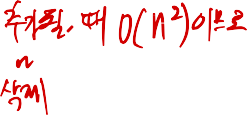 추가될 때 O(n²)이므로
n
삭제